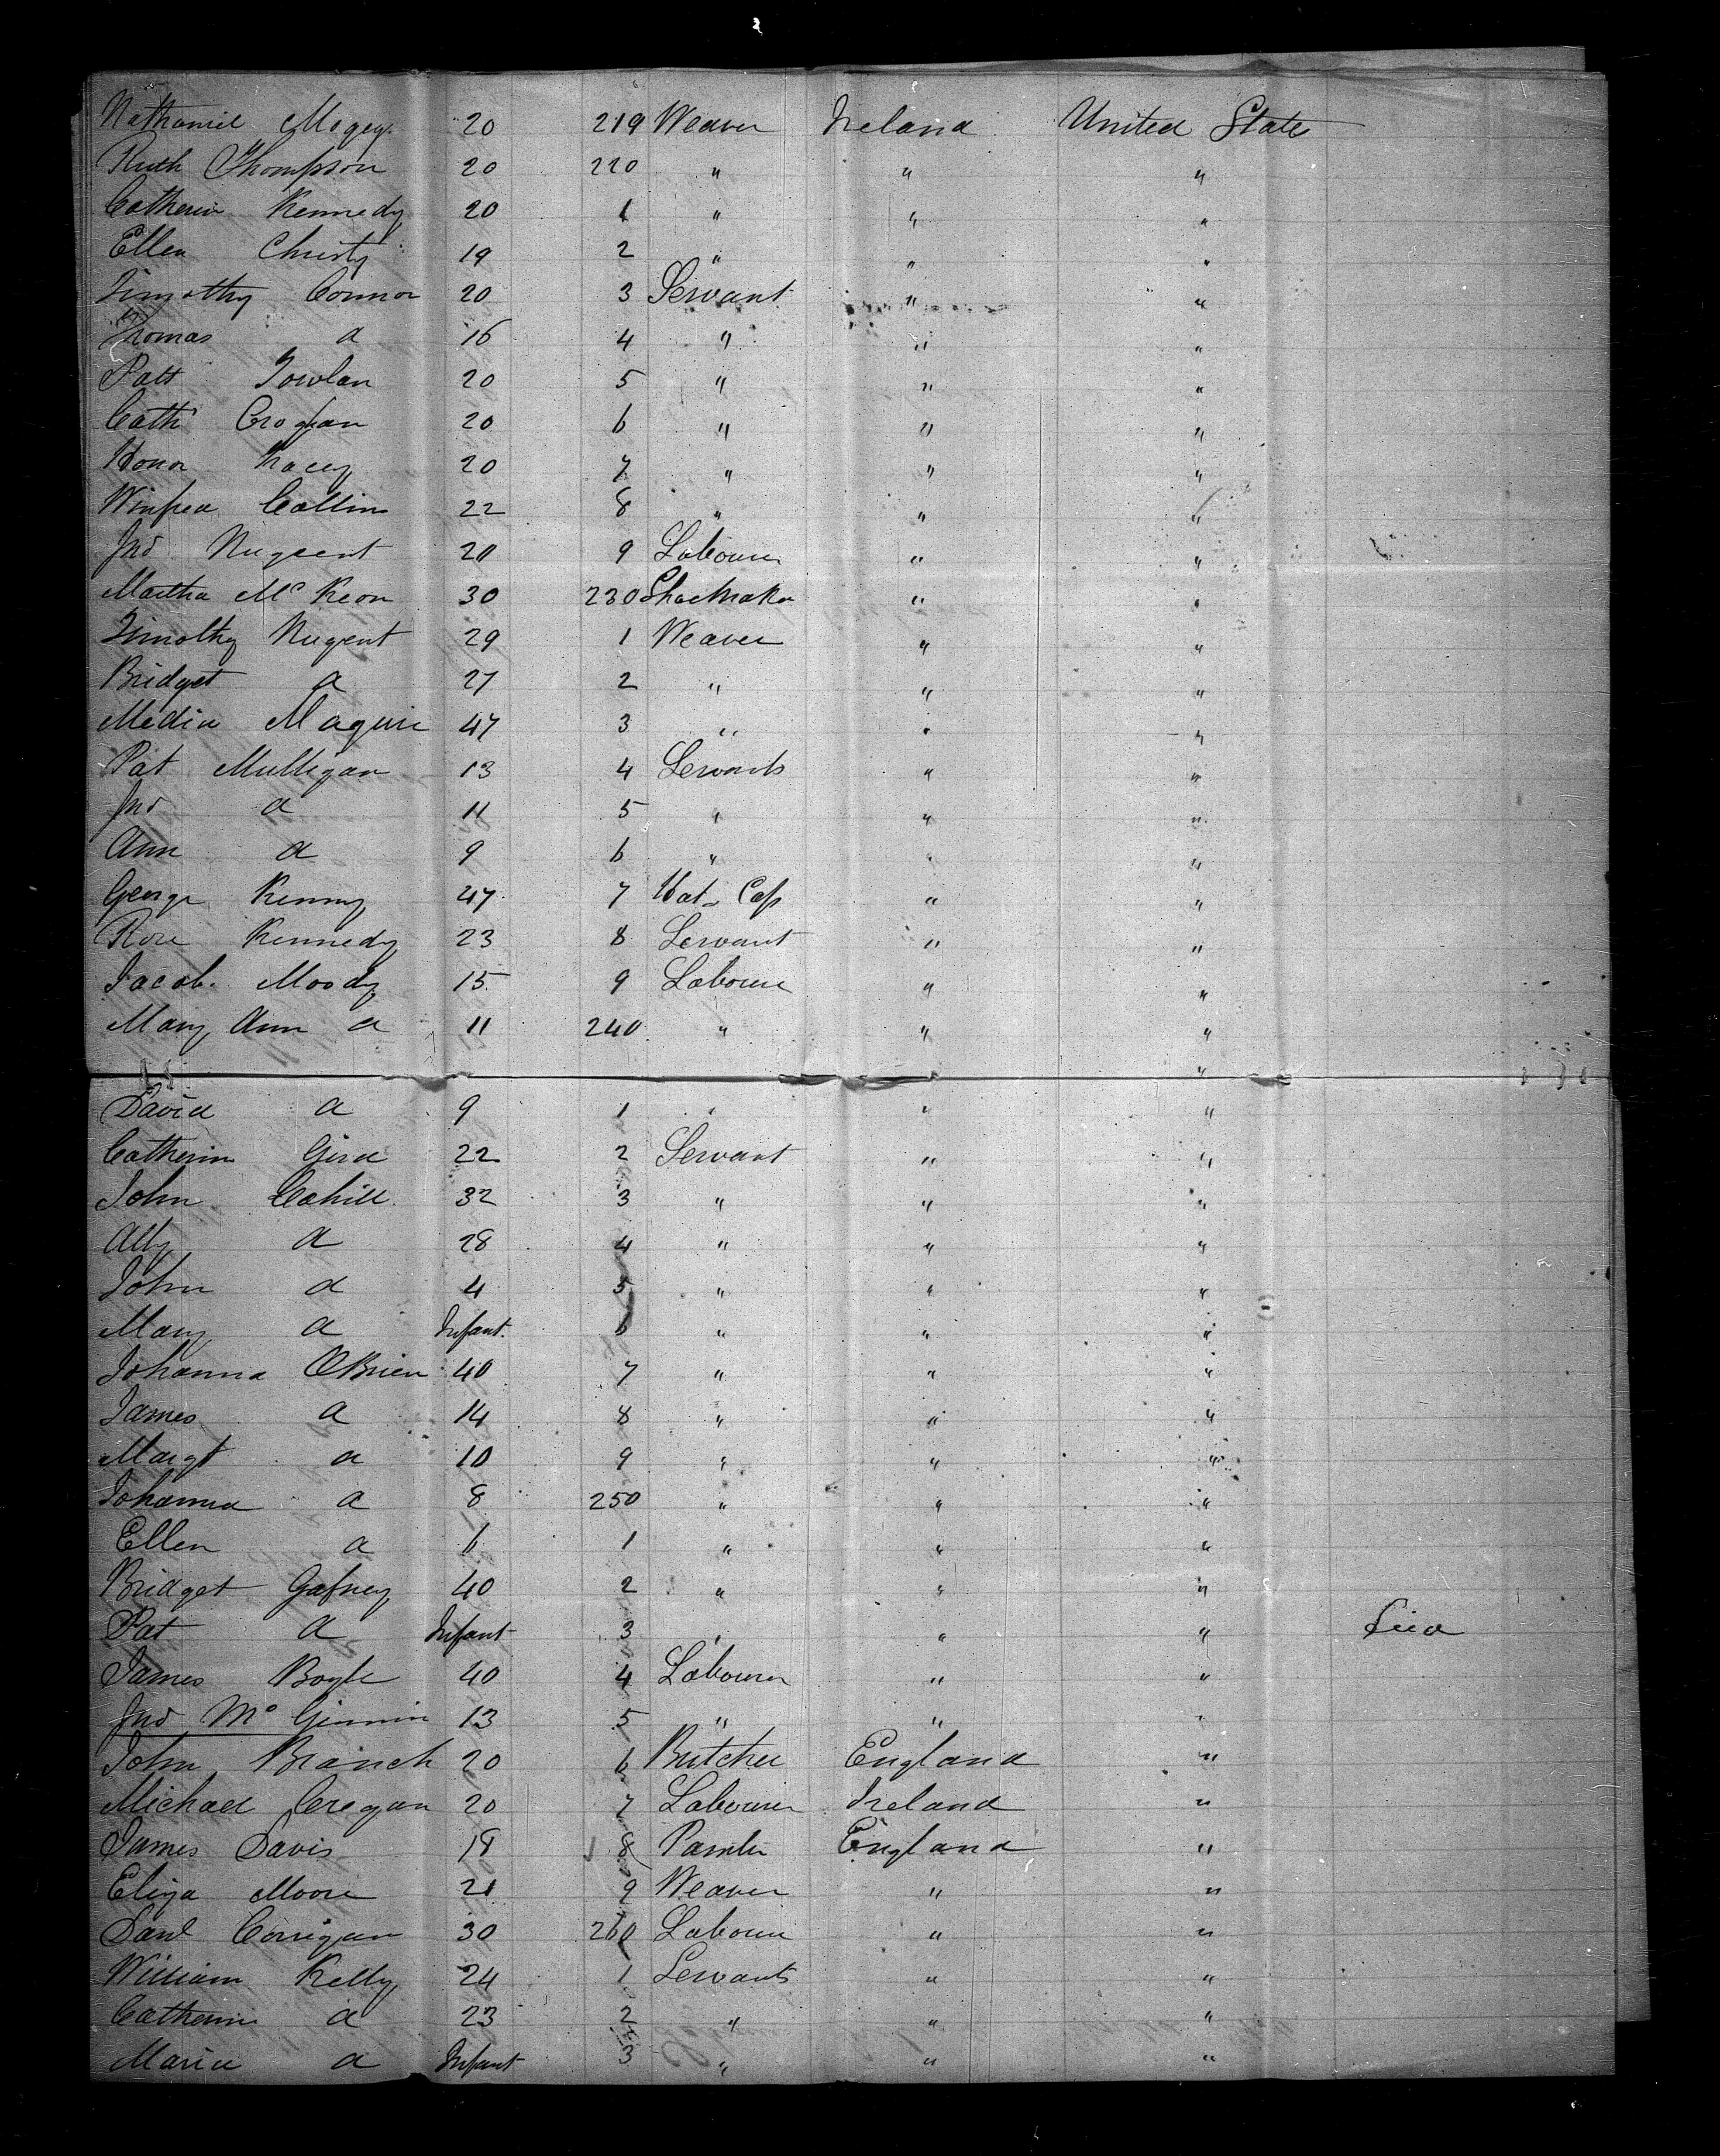 Nathaniel Mogey 20 219 Weaver Ireland United States
Ruth Thompson 20 220 " " "
Catherin Kennedy 20 1 " " "
Ellen Christy 19 2 " " "
Timothy Connor 20 3 Servant " "
Thomas a 16 4 " " "
Patt Towlan 20 5 " " "
Cath Croghan 20 6 " " "
Honor Kacey 20 7 " " "
Winfred Collins 22 8 " " "
Jno Nugent 20 9 Labourer " "
Martha McKeon 30 230 Shoemaker " "
Timothy Nugent 29 1 Weaver " "
Bridget a 27 2 " " "
Media Maguire 47 3 " " "
Pat Mulligan 13 4 Servants " "
Jno a 11 5 " " "
Ann a 9 6 " " "
George Kenny 47 7 Hat Cap " "
Rose Kennedy 23 8 Servant " "
Jacob Moody 15 9 Labourer " "
Mary Ann a 11 240 " " "
"
David a 9 1 " " "
Catherin 22 2 Servant " "
John Cahill 32 3 " " "
Ally a 28 4 " " "
John a 4 5 " " "
Mary a Infant 6 " " "
Johanna OBrien 40 7 " " "
James a 14 8 " " "
Margt a 10 9 " " "
Johanna a 8 250 " " "
Ellen a 6 1 " " "
Bridget Gafney 40 2 " " "
Pat a Infant 3 " " " Died
James Boyle 40 4 Labourer " "
Jno McGinnin 13 5 " " "
John Branch 20 6 Butcher England "
Michael Cregan 20 7 Labourer Ireland "
James Davis 18 8 Painter England "
Eliza Moore 21 9 Weaver " "
Danl Corrigan 30 260 Labourer " "
William Kelly 24 1 Servants " "
Catherin a 23 2 " " "
Maria a Infant 3 " " "